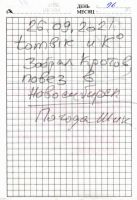 ДЕНЬ 96
МЕСЯЦ
26.09.2021
tomвik и К°
Забрал Кротов
повез в
Новосибирск
Погода Шик